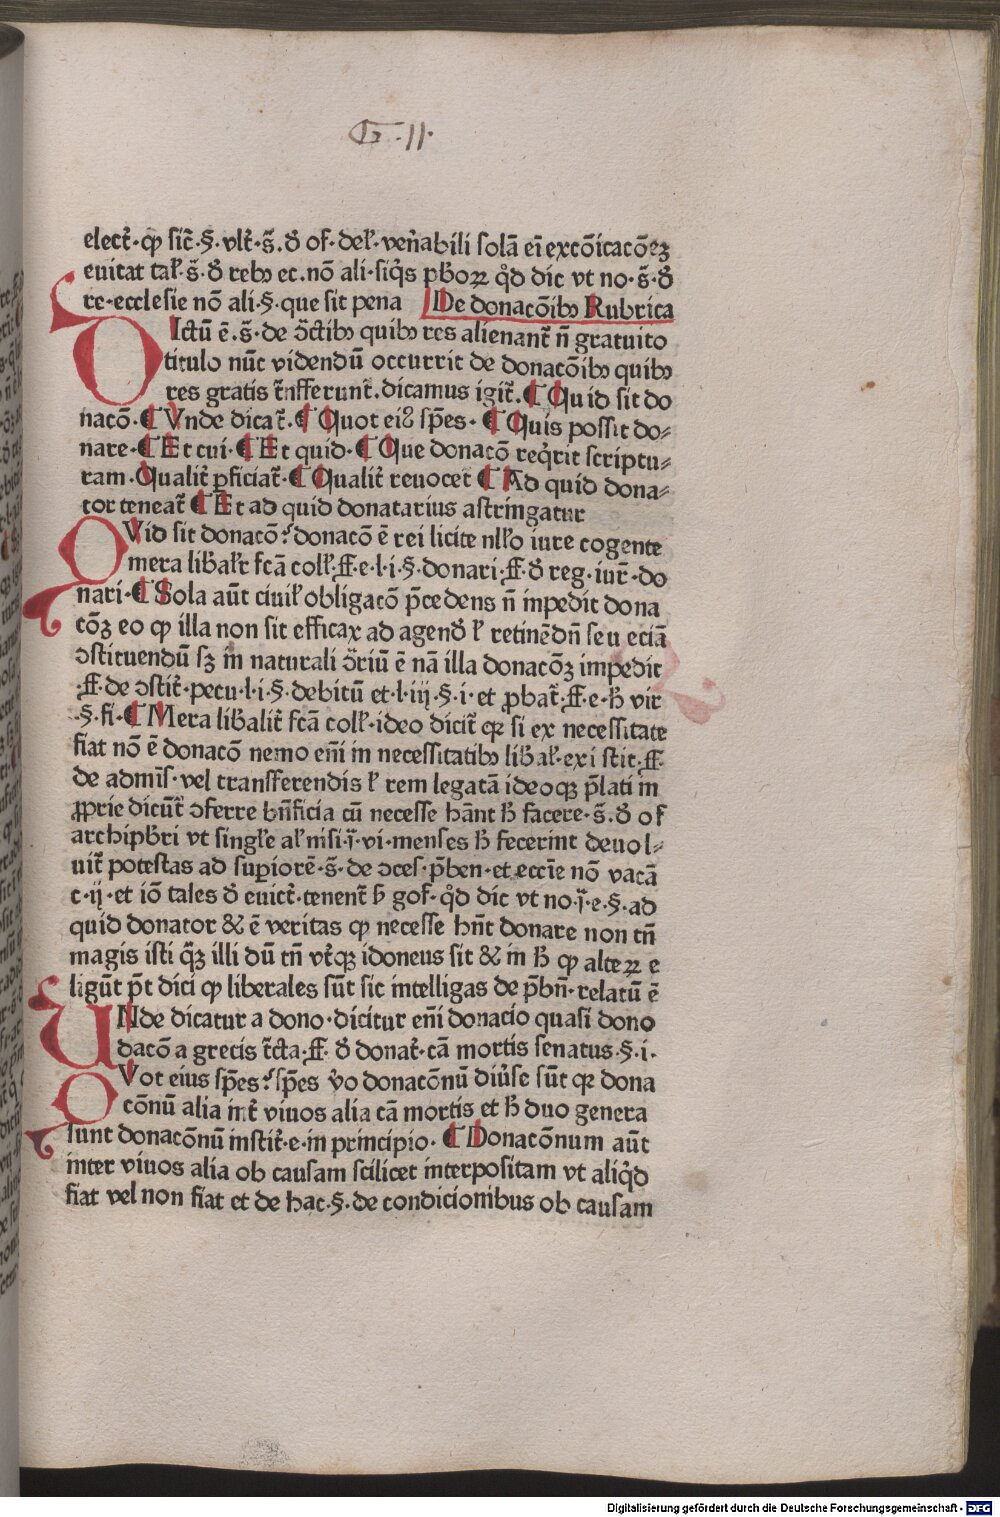 G·II·
elect̃·ꝙ sic̃·§·vlt̃·s̃·ꝺ̃ of·deł·veñabili solã eĩ excõicacõeꝫ
euitat tał·s̃·ꝺ̃ rebꝰ ec·nõ ali·siq̃s p̃boꝝ q̃d dic vt no·s̃·ꝺ̃
re·ecclesie nõ ali·§·que sit pena De donacõibꝰ Rubrica
DIctũ ẽ·s̃·de ↄ̃ctibꝰ quibꝰ res alienant̃ ñ gratuito
titulo nũc videndũ occurrit de donacõibꝰ quibꝰ
res gratis t̃nsferunt̃·dicamus igit̃·¶ Quid sit do
nacõ·¶ Vnde dicat̃·¶ Quot eiꝰ sp̃es·¶ Quis possit do⸗
nare·¶ Et cui·¶ Et quid·¶ Que donacõ req̃rit scriptu⸗
ram·Qualit̃ ꝑficiat̃·¶ Qualit̃ reuocet̃ ¶ Ad quid dona⸗
tor teneat̃ ¶ Et ad quid donatarius astringatur
QVid sit donacõ? donacõ ẽ rei licite nłło iure cogente
mera lib̃ałr̃ fcã coll̃·ff·e·l·i·§·donari·ff·ꝺ̃ reg·iur̃·do
nari·¶ Sola aũt ciuił obligacõ p̃cedens ñ inpedit dona
cõꝫ eo ꝙ illa non sit efficax ad agend̃ ł retinẽdñ seu eciã
ↄstituendũ sꝫ in naturali ↄ̃riũ ẽ nã illa donacõꝫ impedit
·ff·de ↄstit̃·pecu·l·i·§·debitũ et·l·iij·§·i·et ꝓbat̃·ff·e·h̃ vir
·§·fi·¶ Mera lib̃alit̃ fcã coll̃·ideo dicit̃ qꝛ si ex necessitate
fiat nõ ẽ donacõ nemo eñi in necessitatibꝰ lib̃ał·existit·ff·
de admĩs·vel transferendis ł rem legatã ideoqꝫ p̃lati in
ꝓprie dicũt̃ ↄferre bñficia cũ necesse hãnt h̃ facere·s̃·ꝺ̃ of
archipb̃ri vt singłe ał nisi·ĩ·vi·menses h̃ fecerint deuol⸗
uit̃ potestas ad suꝑiorẽ·s̃·de ↄces·p̃ben·et eccĩe nõ vacã
c·ij·et iõ tales ꝺ̃ euict̃·tenent̃ h̃ gof·q̃d dic vt no·ĩ·e·§·ad
quid donator & ẽ veritas ꝙ necesse hñt donare non tñ
magis isti q̃ꝫ illi dũ tñ vt̃qꝫ idoneus sit & in h̃ ꝙ alteꝝ e
ligũt p̃t dici ꝙ liberales sũt sic intelligas de p̃bñ·relatũ ẽ
VNde dicatur a dono·dicitur eñi donacio quasi dono
dacõ a grecis t̃cta·ff·ꝺ̃ donat̃·cã mortis senatus·§·i·
QVot eius sp̃es? sp̃es ṽo donacõnũ diũse sũt qꝛ dona
cõnũ alia int̃ viuos alia cã mortis et h̃ duo genera
sunt donacõnũ instit̃·e·in principio·¶ Donacõnum aũt
inter viuos alia ob causam scilicet interpositam vt aliq̃d
fiat vel non fiat et de hac·§·de condicionibus ob causam
Digitalisierung gefördert durch die Deutsche Forschungsgemeinschaft - DFG